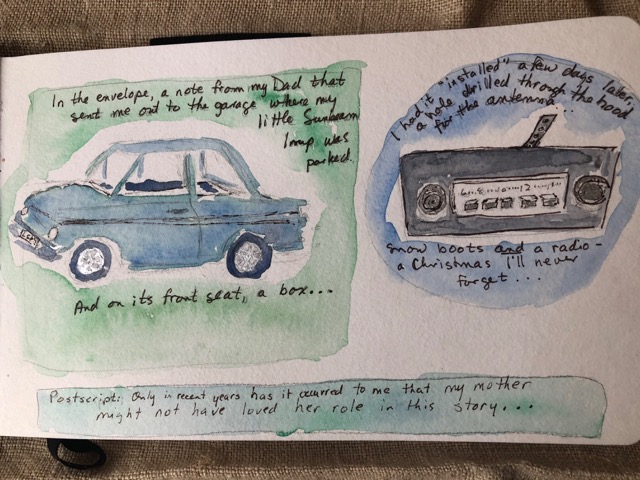 In the envelope, a note from my Dad that
sent me out to the garage where my
little Sunbeam
Imp was
parked.
And on its front seat, a box...
I had it "installed" a few days later,
a hole drilled through the hood
for the antenna...
snow boots and a radio -
a Christmas I'll never
forget...
Postscript: Only in recent years has it occurred to me that my mother
might not have loved her role in this story...